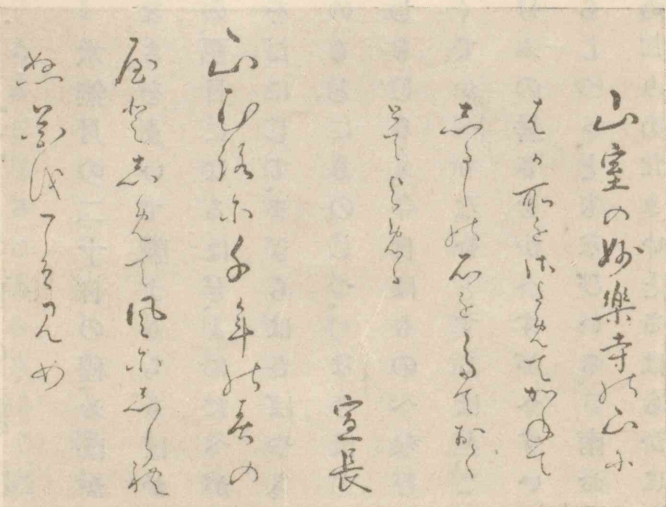 山室の妙樂寺の山に
はか所をさためてかねて
しるしの石をたておく
とてよめる
宣長
山むろに千年の春の
やとしめて風にしられ
ぬ花をこそ見め